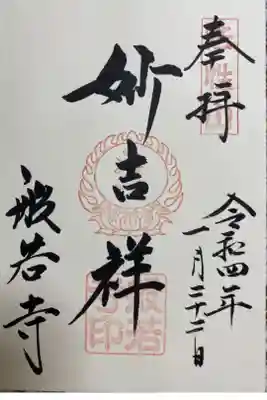 奉拝
令和四年
一月二十二日
妙吉祥
般若寺
般若寺印